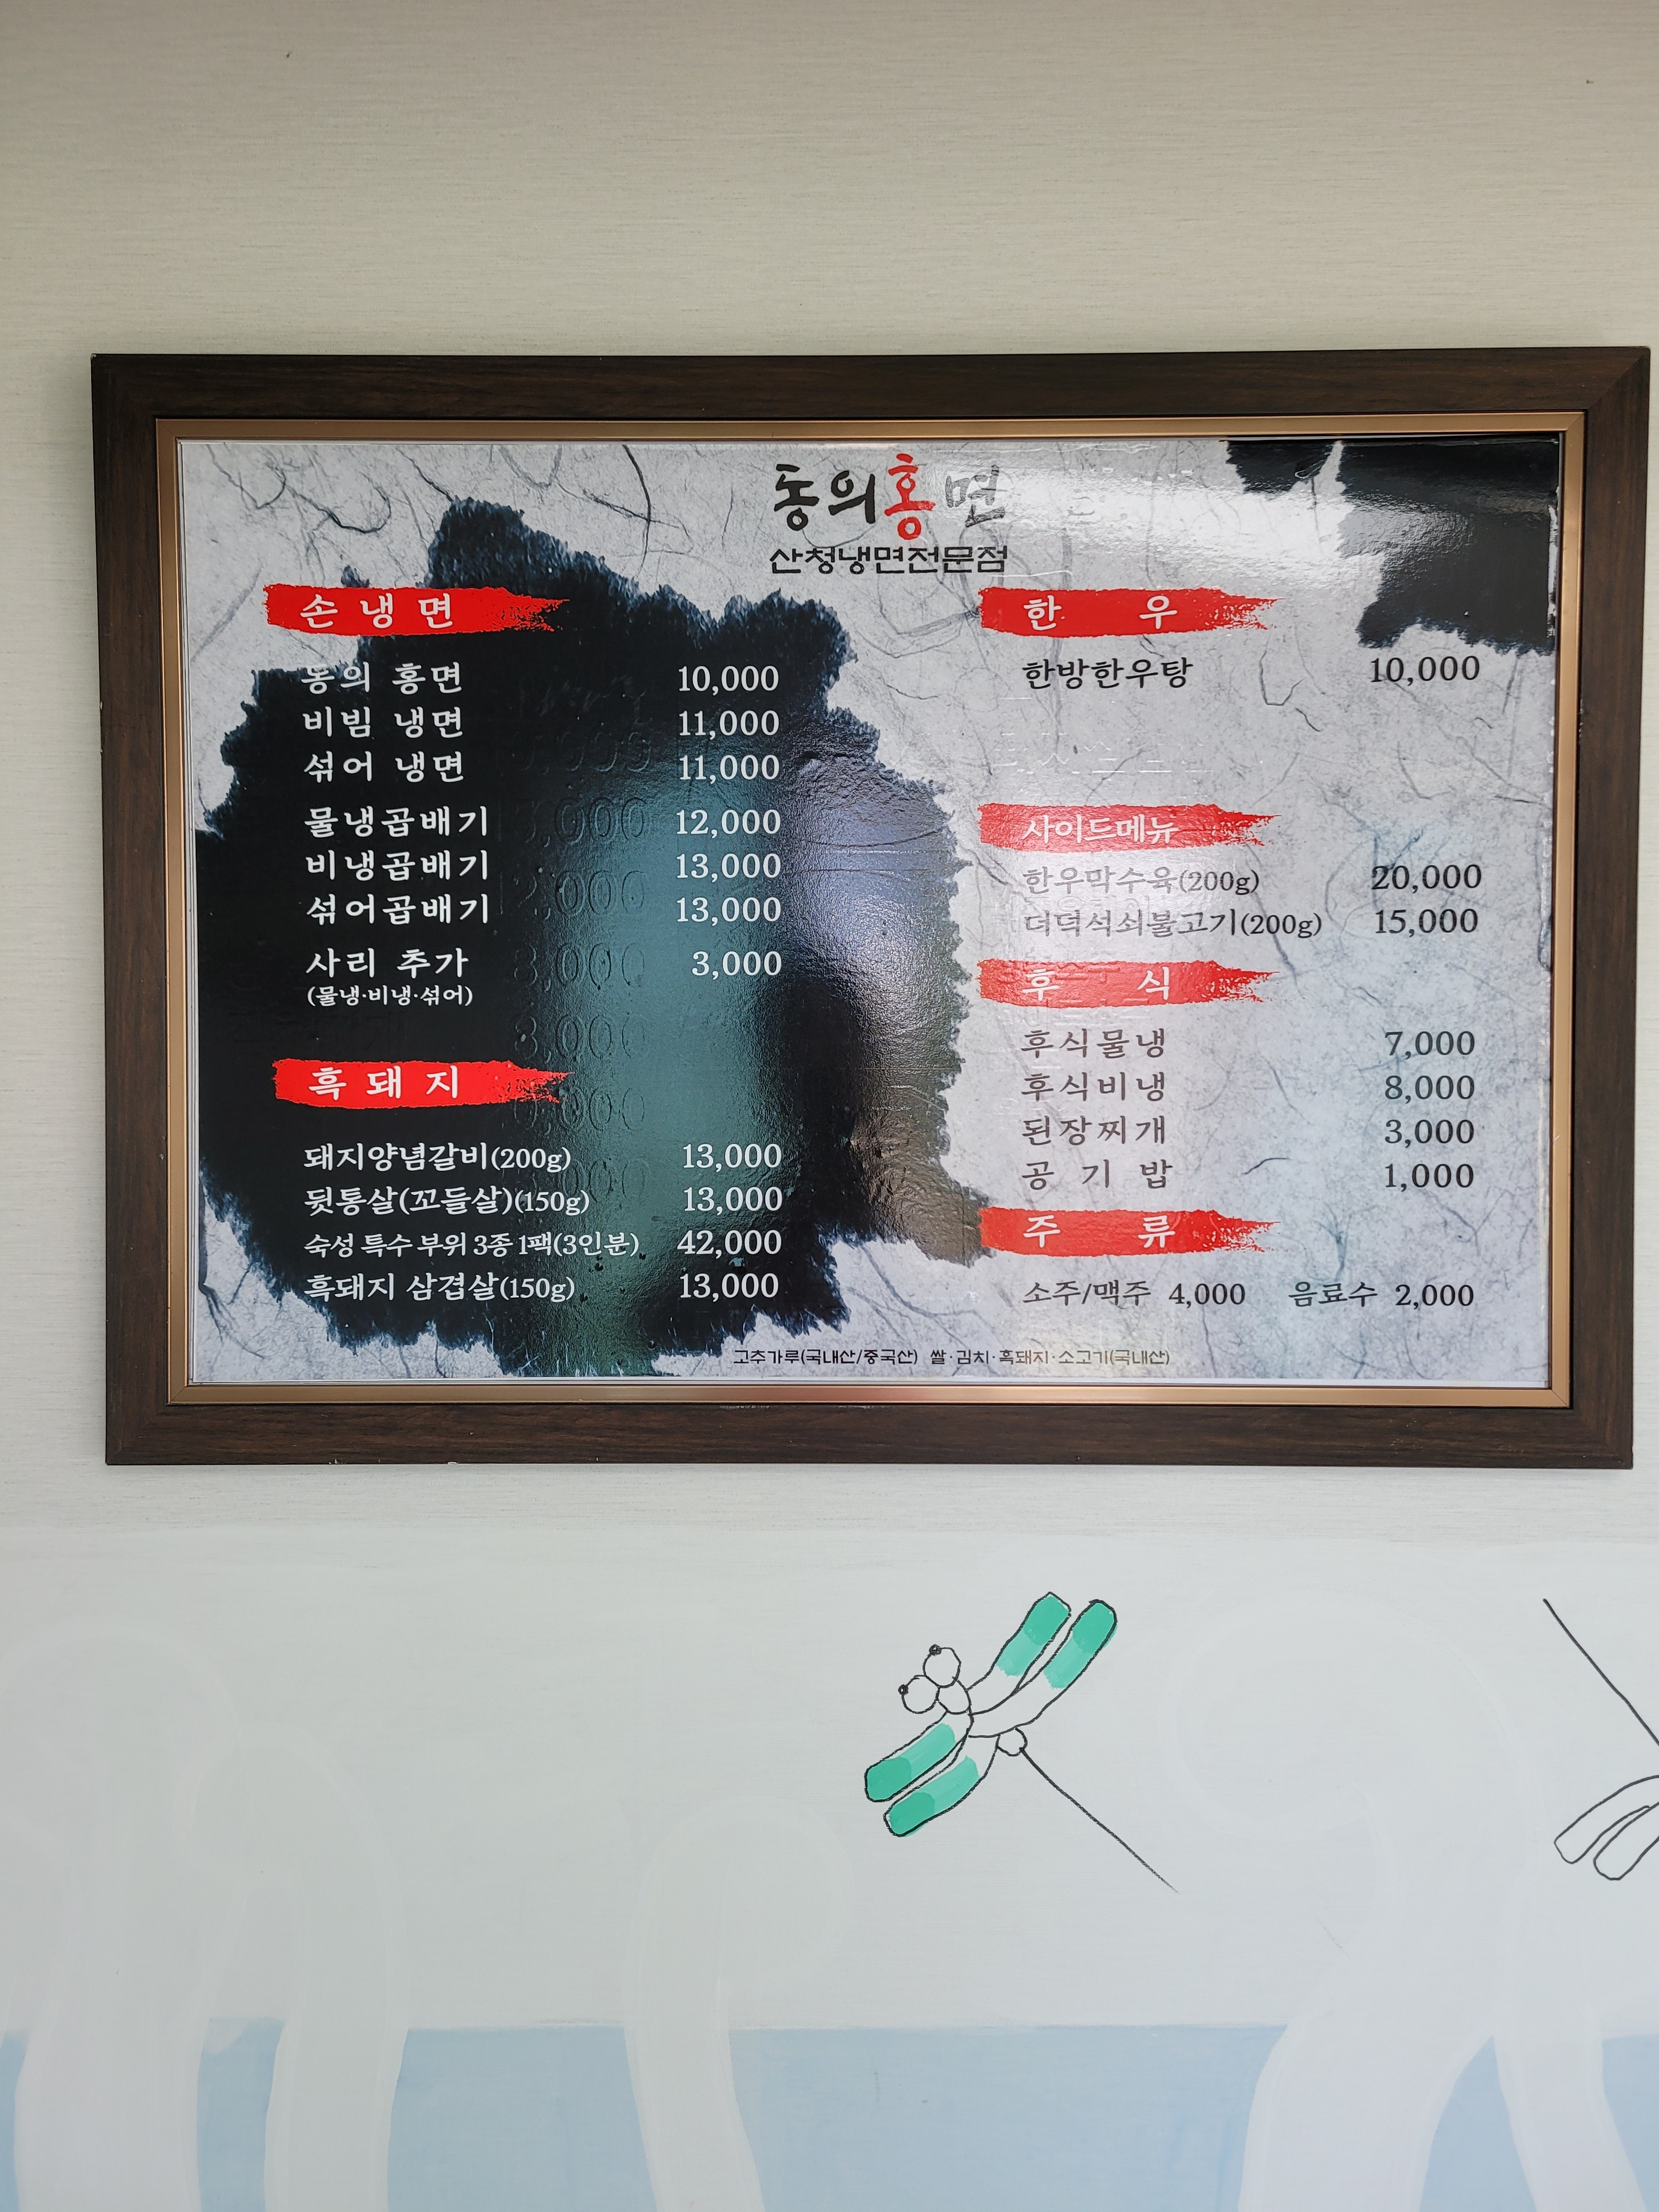 동의홍면
산청냉면전문점
손냉면
동의 홍면 10,000
비빔 냉면 11,000
섞어 냉면 11,000
물냉곱배기 12,000
비냉곱배기 13,000
섞어곱배기 13,000
사리 추가 3,000
(물냉·비냉·섞어)
흑돼지
돼지양념갈비(200g) 13,000
뒷통살(꼬들살)(150g) 13,000
숙성 특수 부위 3종 1팩(3인분) 42,000
흑돼지 삼겹살(150g) 13,000
한우
한방한우탕 10,000
사이드메뉴
한우막수육(200g) 20,000
더덕석쇠불고기(200g) 15,000
후식
후식물냉 7,000
후식비냉 8,000
된장찌개 3,000
공기밥 1,000
주류
소주/맥주 4,000 음료수 2,000
고추가루(국내산/중국산) 쌀·김치·흑돼지·소고기(국내산)